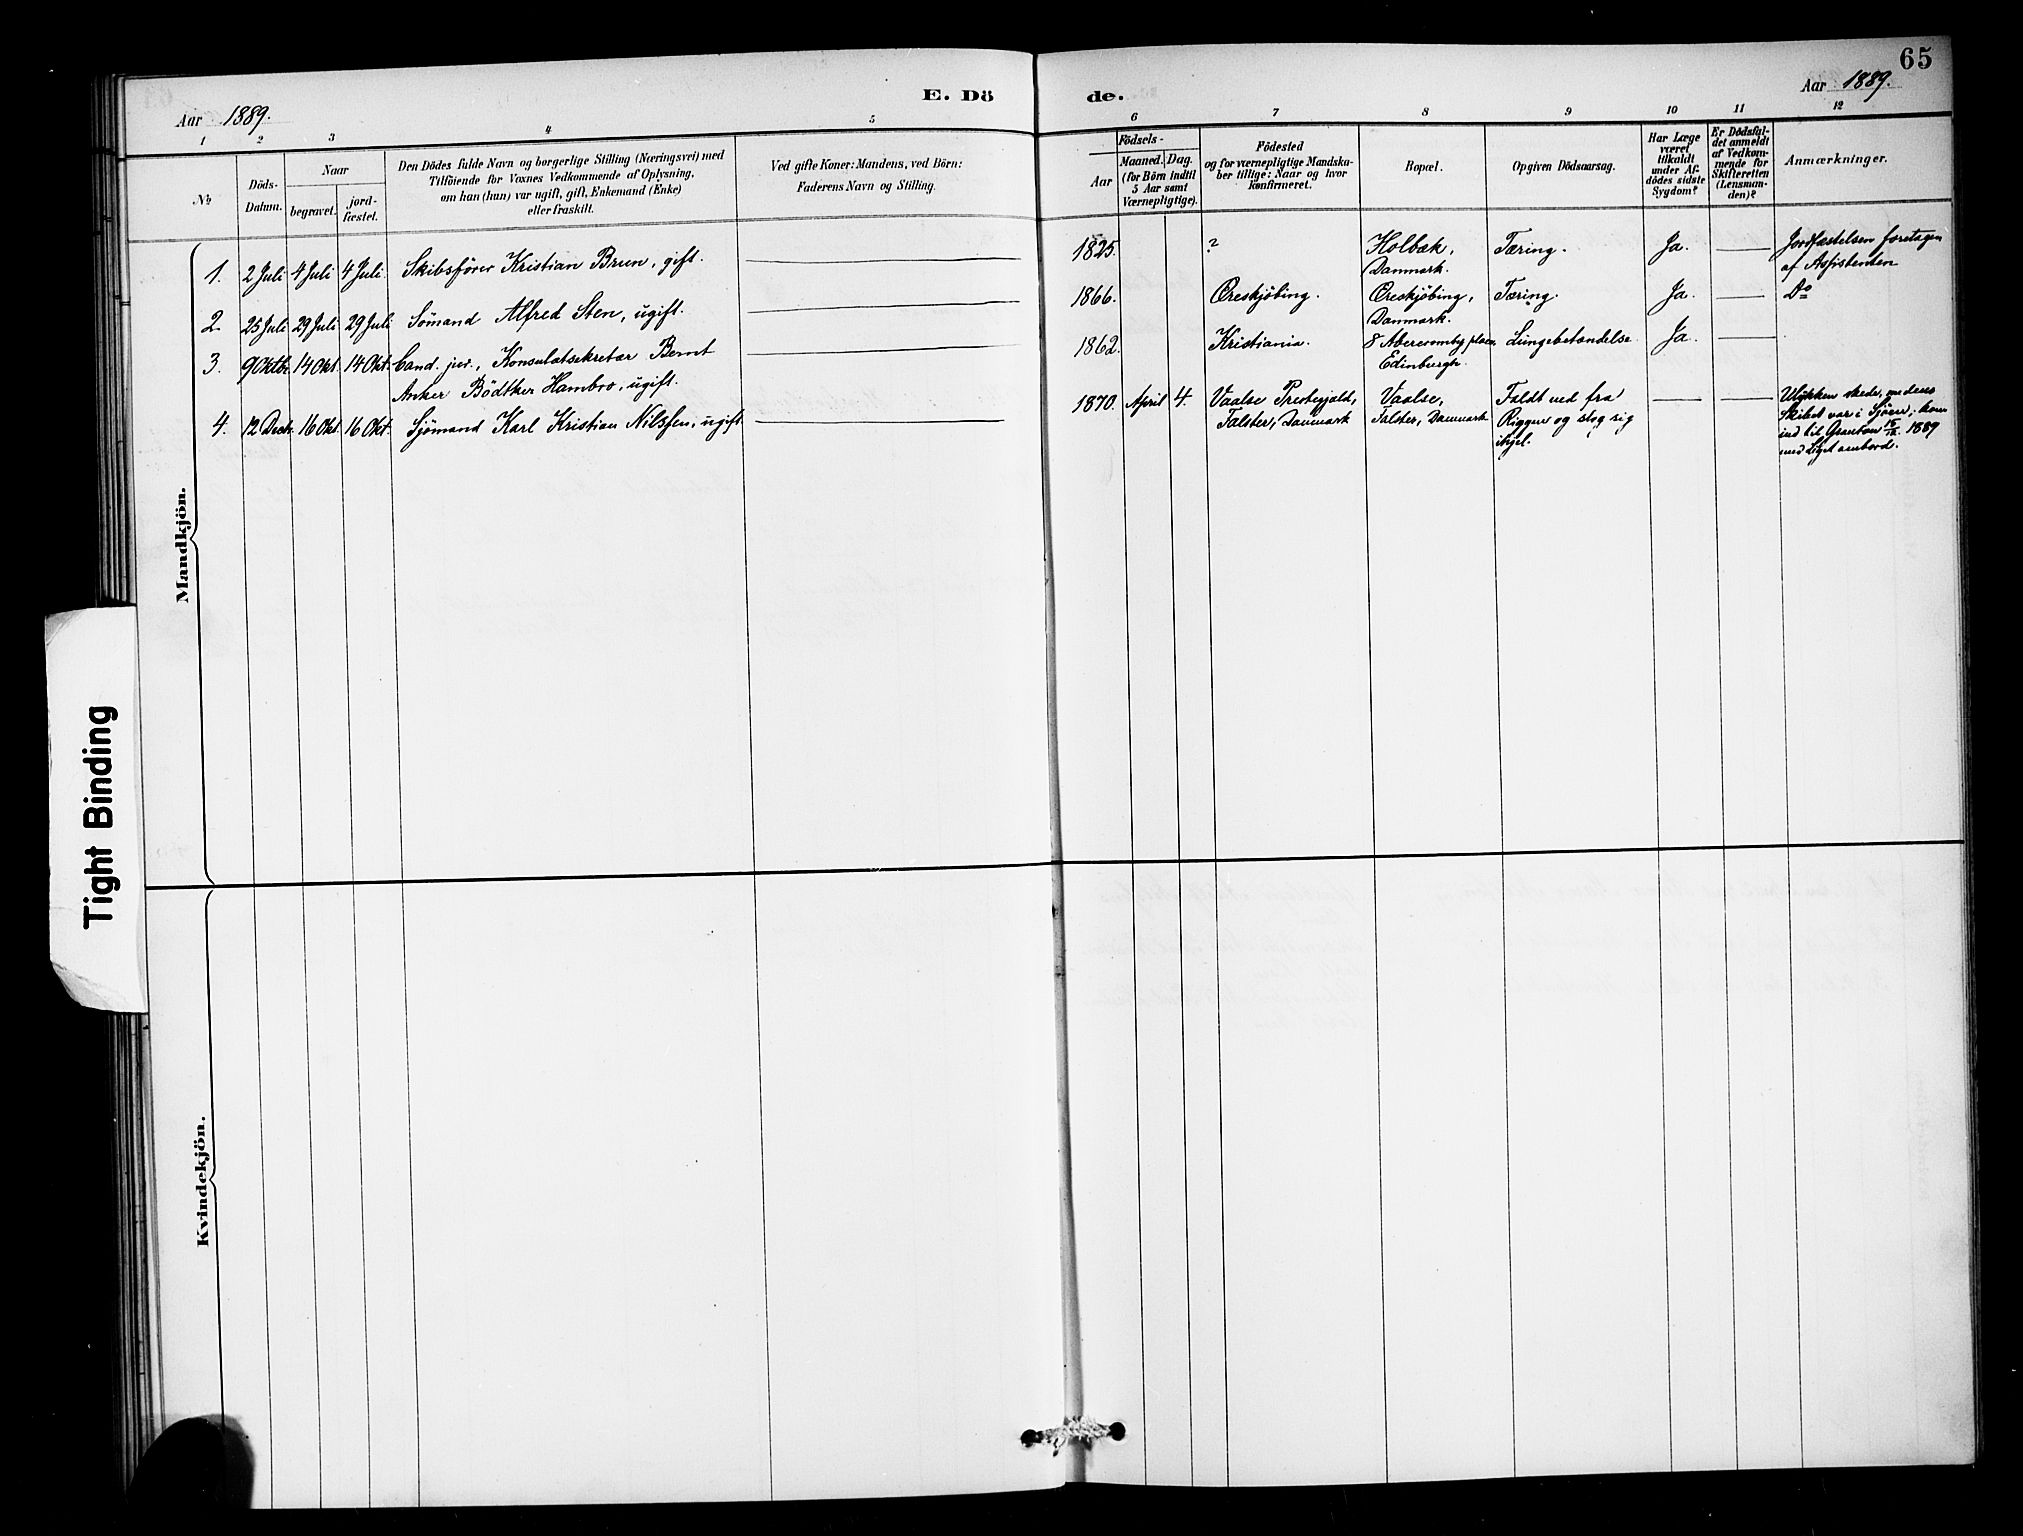 65
Aar 1889.
E. Dö
de.
Aar 1889.
1 2 3 4 5
6 7 8 9 10 11 12
№
Döds-
Datum.
Naar
begravet.
jord-
fæstet.
Den Dödes fulde Navn og borgerlige Stilling (Næringsvei) med
Tilföiende for Voxnes Vedkommende af Oplysning,
om han (hun) var ugift, gift, Enkemand (Enke)
eller fraskilt.
Ved gifte Koner: Mandens, ved Börn:
Faderens Navn og Stilling.
Födsels-
Aar
Maaned. Dag.
(for Börn indtil
5 Aar samt
Værnepligtige).
Födested
og for værnepligtige Mandska-
ber tillige: Naar og hvor
konfirmeret.
Bopæl.
Opgiven Dödsaarsag.
Har Læge
været
tilkaldt
under Af-
dödes sidste
Sygdom?
Er Dödsfal-
det anmeldt
af Vedkom-
mende for
Skifteretten
(Lensman-
den)?
Anmærkninger.
Mandkjön.
1. 2 Juli 4 Juli 4 Juli Skibsfører Kristian Brun, gift.
1825. ? Holbæk, Tæring. Ja. Jordfæstelsen foretagen
Danmark. af Assistenten
2. 25 Juli 29 Juli 29 Juli Sömand Alfred Sten, ugift.
1866. Øreskjöbing. Øreskjöbing, Tæring. Ja. Do
Danmark.
3. 9 Oktbr. 14 Okt. 14 Okt. Cand. jur., Konsulatsekretær Bernt
Anker Bödtker Hambro, ugift.
1862. Kristiania. 8 Abercromby place, Lungebetændelse. Ja.
Edinburgh.
4. 12 Decbr 16 Okt. 16 Okt. Sjömand Karl Kristian Nilssen, ugift.
1870. April 4. Vaalse Prestegjeld, Vaalse, Faldt ned fra Ulykken skede, medens
Falster, Danmark Falster, Danmark Riggen og slog sig Skibet var i Sjöen; kom
ihjel. ind til Granton 15/12 1889
med Liget ombord.
Kvindekjön.
Tight Binding